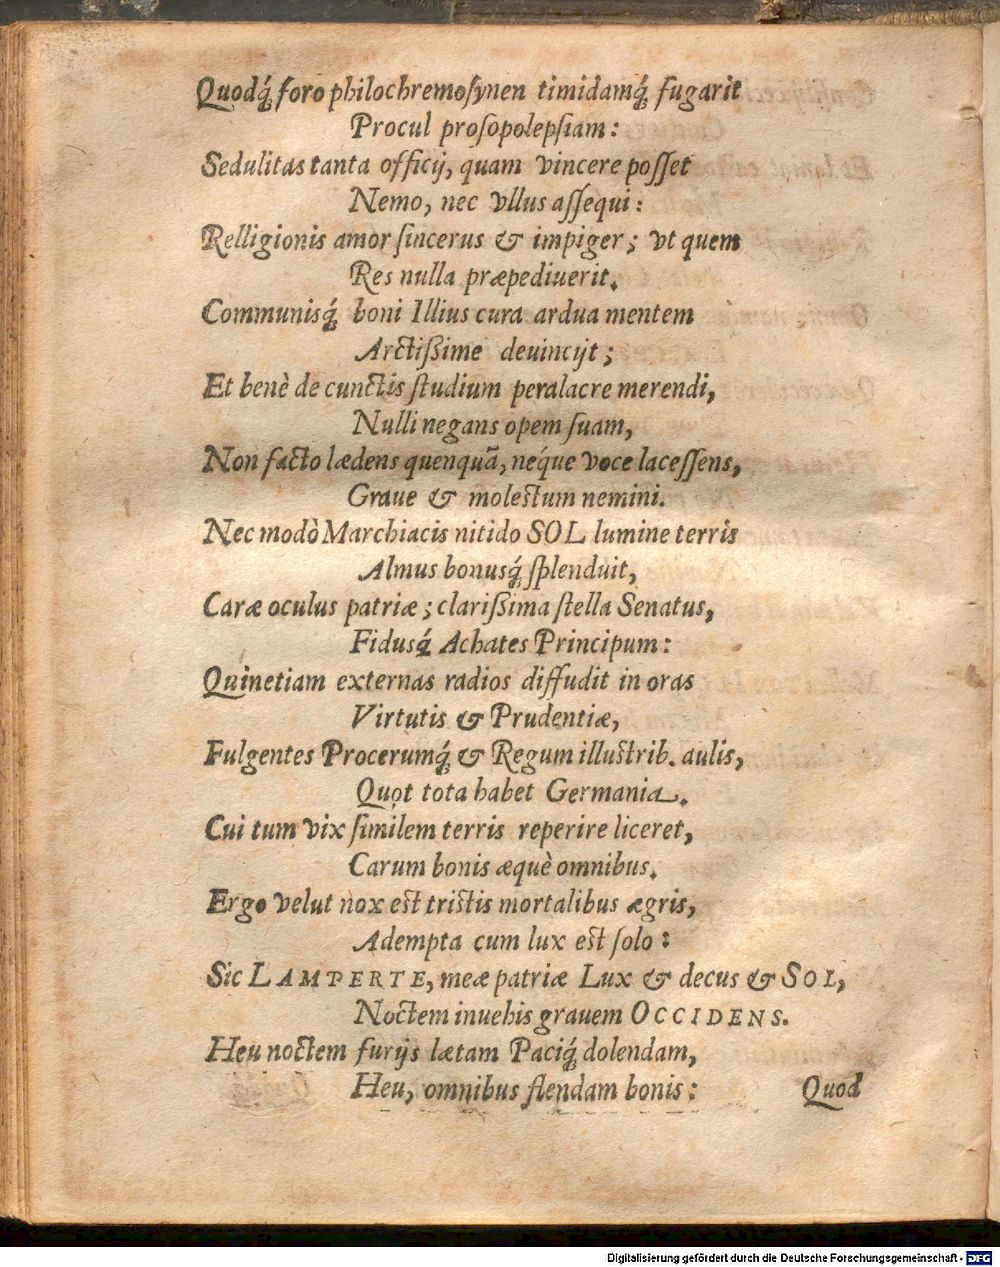 Quodq́; foro philochremoſynen timidamq́; fugarit
Procul proſopolepſiam:
Sedulitas tanta officij, quam vincere poſſet
Nemo, nec vllus aſſequi:
Relligionis amor ſincerus & impiger; vt quem
Res nulla præpediuerit.
Communisq́; boni Illius cura ardua mentem
Arctißime deuincijt;
Et benè de cunctis ſtudium peralacre merendi,
Nulli negans opem ſuam,
Non facto lædens quenquã, neq́ue voce laceſſens,
Graue & moleſtum nemini.
Nec modò Marchiacis nitido SOL lumine terris
Almus bonusq́; ſplenduit,
Caræ oculus patriæ; clarißima ſtella Senatus,
Fidusq́; Achates Principum:
Quinetiam externas radios diffudit in oras
Virtutis & Prudentiæ,
Fulgentes Procerumq́; & Regum illuſtrib. aulis,
Quot tota habet Germania.
Cui tum vix ſimilem terris reperire liceret,
Carum bonis æquè omnibus.
Ergo velut nox eſt triſtis mortalibus ægris,
Adempta cum lux eſt ſolo:
Sic LAMPERTE, meæ patriæ Lux & decus & SOL,
Noctem inuehis grauem OCCIDENS.
Heu noctem furijs lætam Paciq́; dolendam,
Heu, omnibus flendam bonis:
Quod
Digitalisierung gefördert durch die Deutsche Forschungsgemeinschaft - DFG